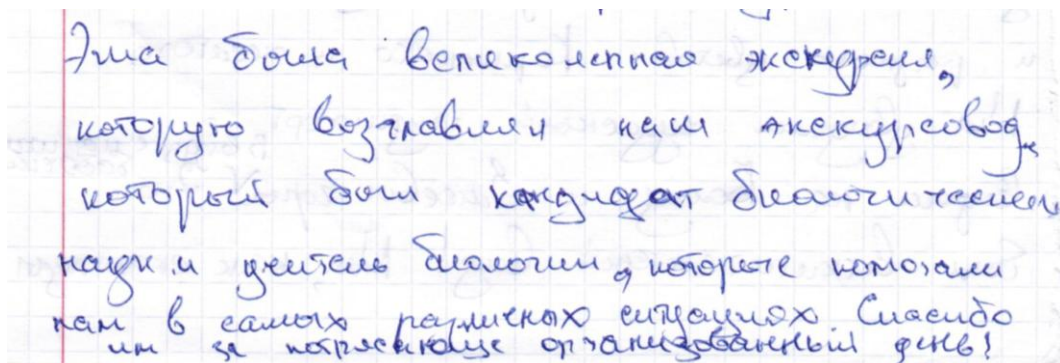 Эта была великолепная экскурсия,
которую возглавлял наш экскурсовод,
который был кандидат биологических
наук и учителя биологии, которые помогали
нам в самых различных ситуациях. Спасибо
им за потрясающе организованный день!